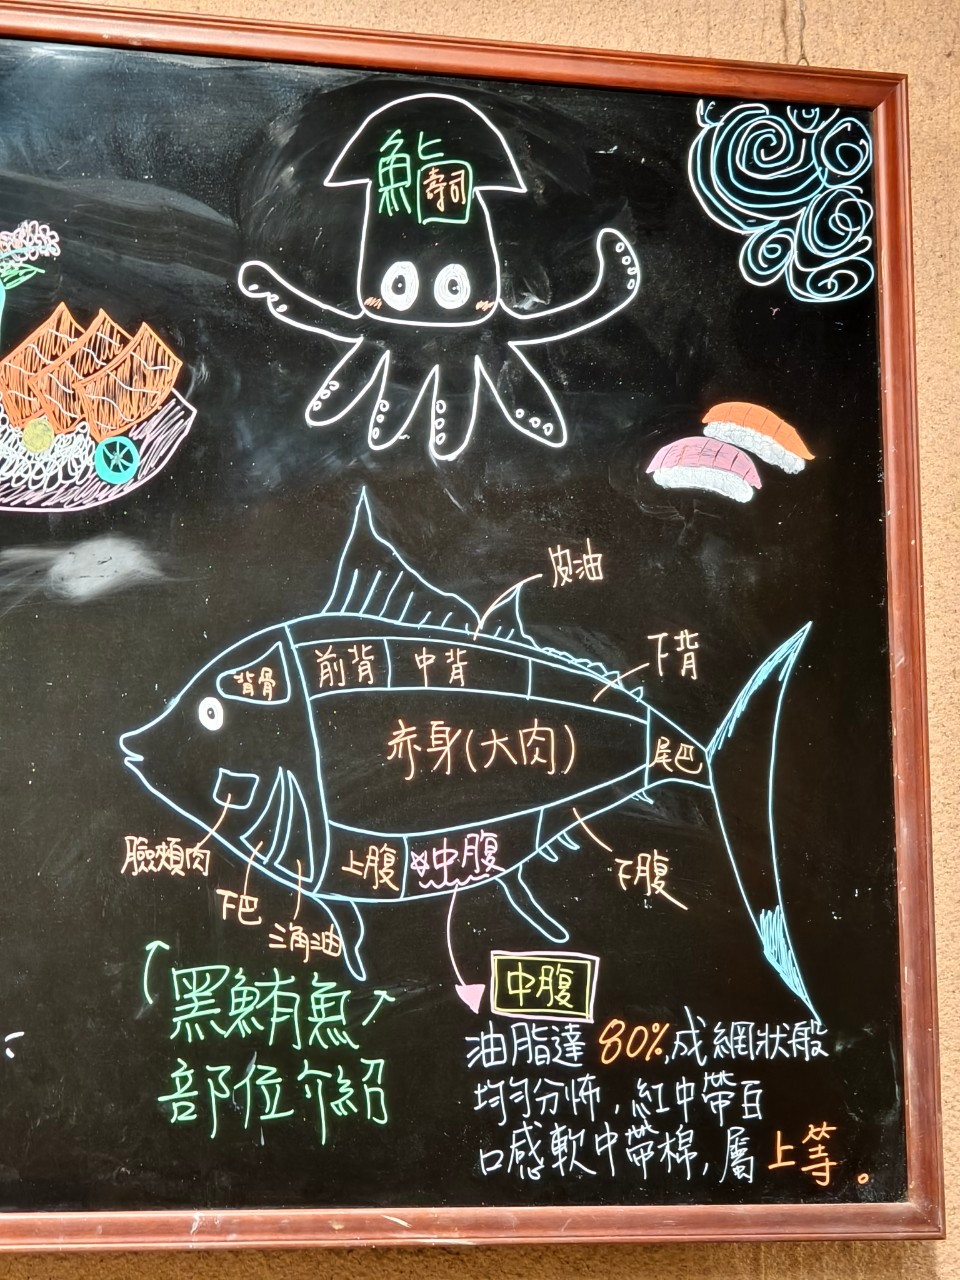 鮨
壽司
皮油
下背
背骨
前背
中背
赤身(大肉)
尾巴
臉頰肉
下巴
三角油
上腹
中腹
下腹
黑鮪魚
部位介紹
中腹
油脂達80%,成網狀般
均勻分怖,紅中帶白
口感軟中帶棉,屬上等。